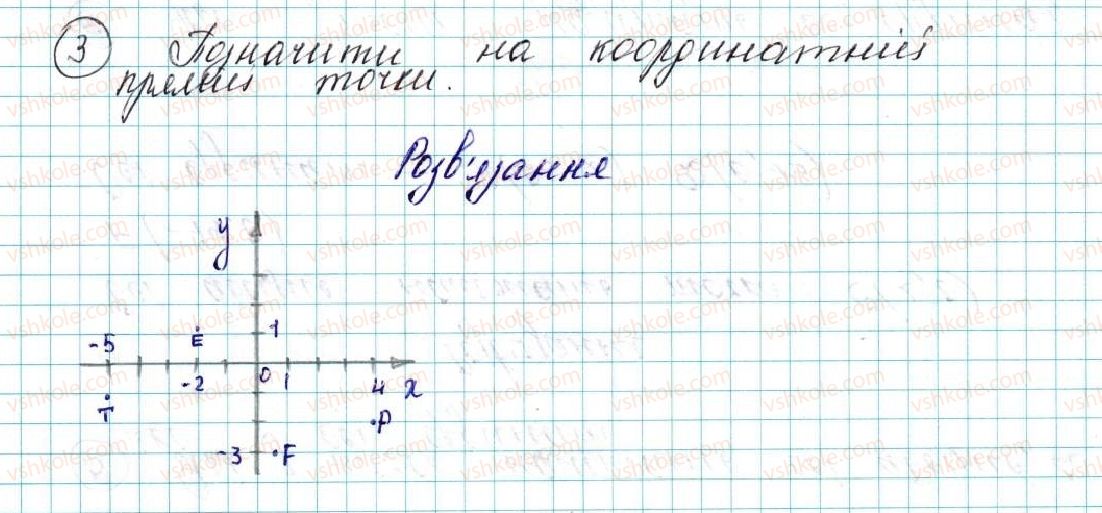 3 Позначити на координатній
прямій точки.
Розв'язання
y
-5 E 1
-2 0 1 4 x
T P
-3 F